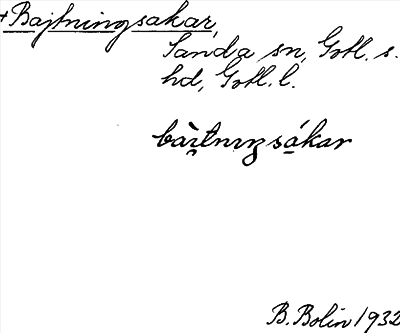 + Bajtningsakar,
Sanda sn, Gotl. s.
hd, Gotl. l.
bài̯tnıŋsá̱kar
B. Bolin 1932